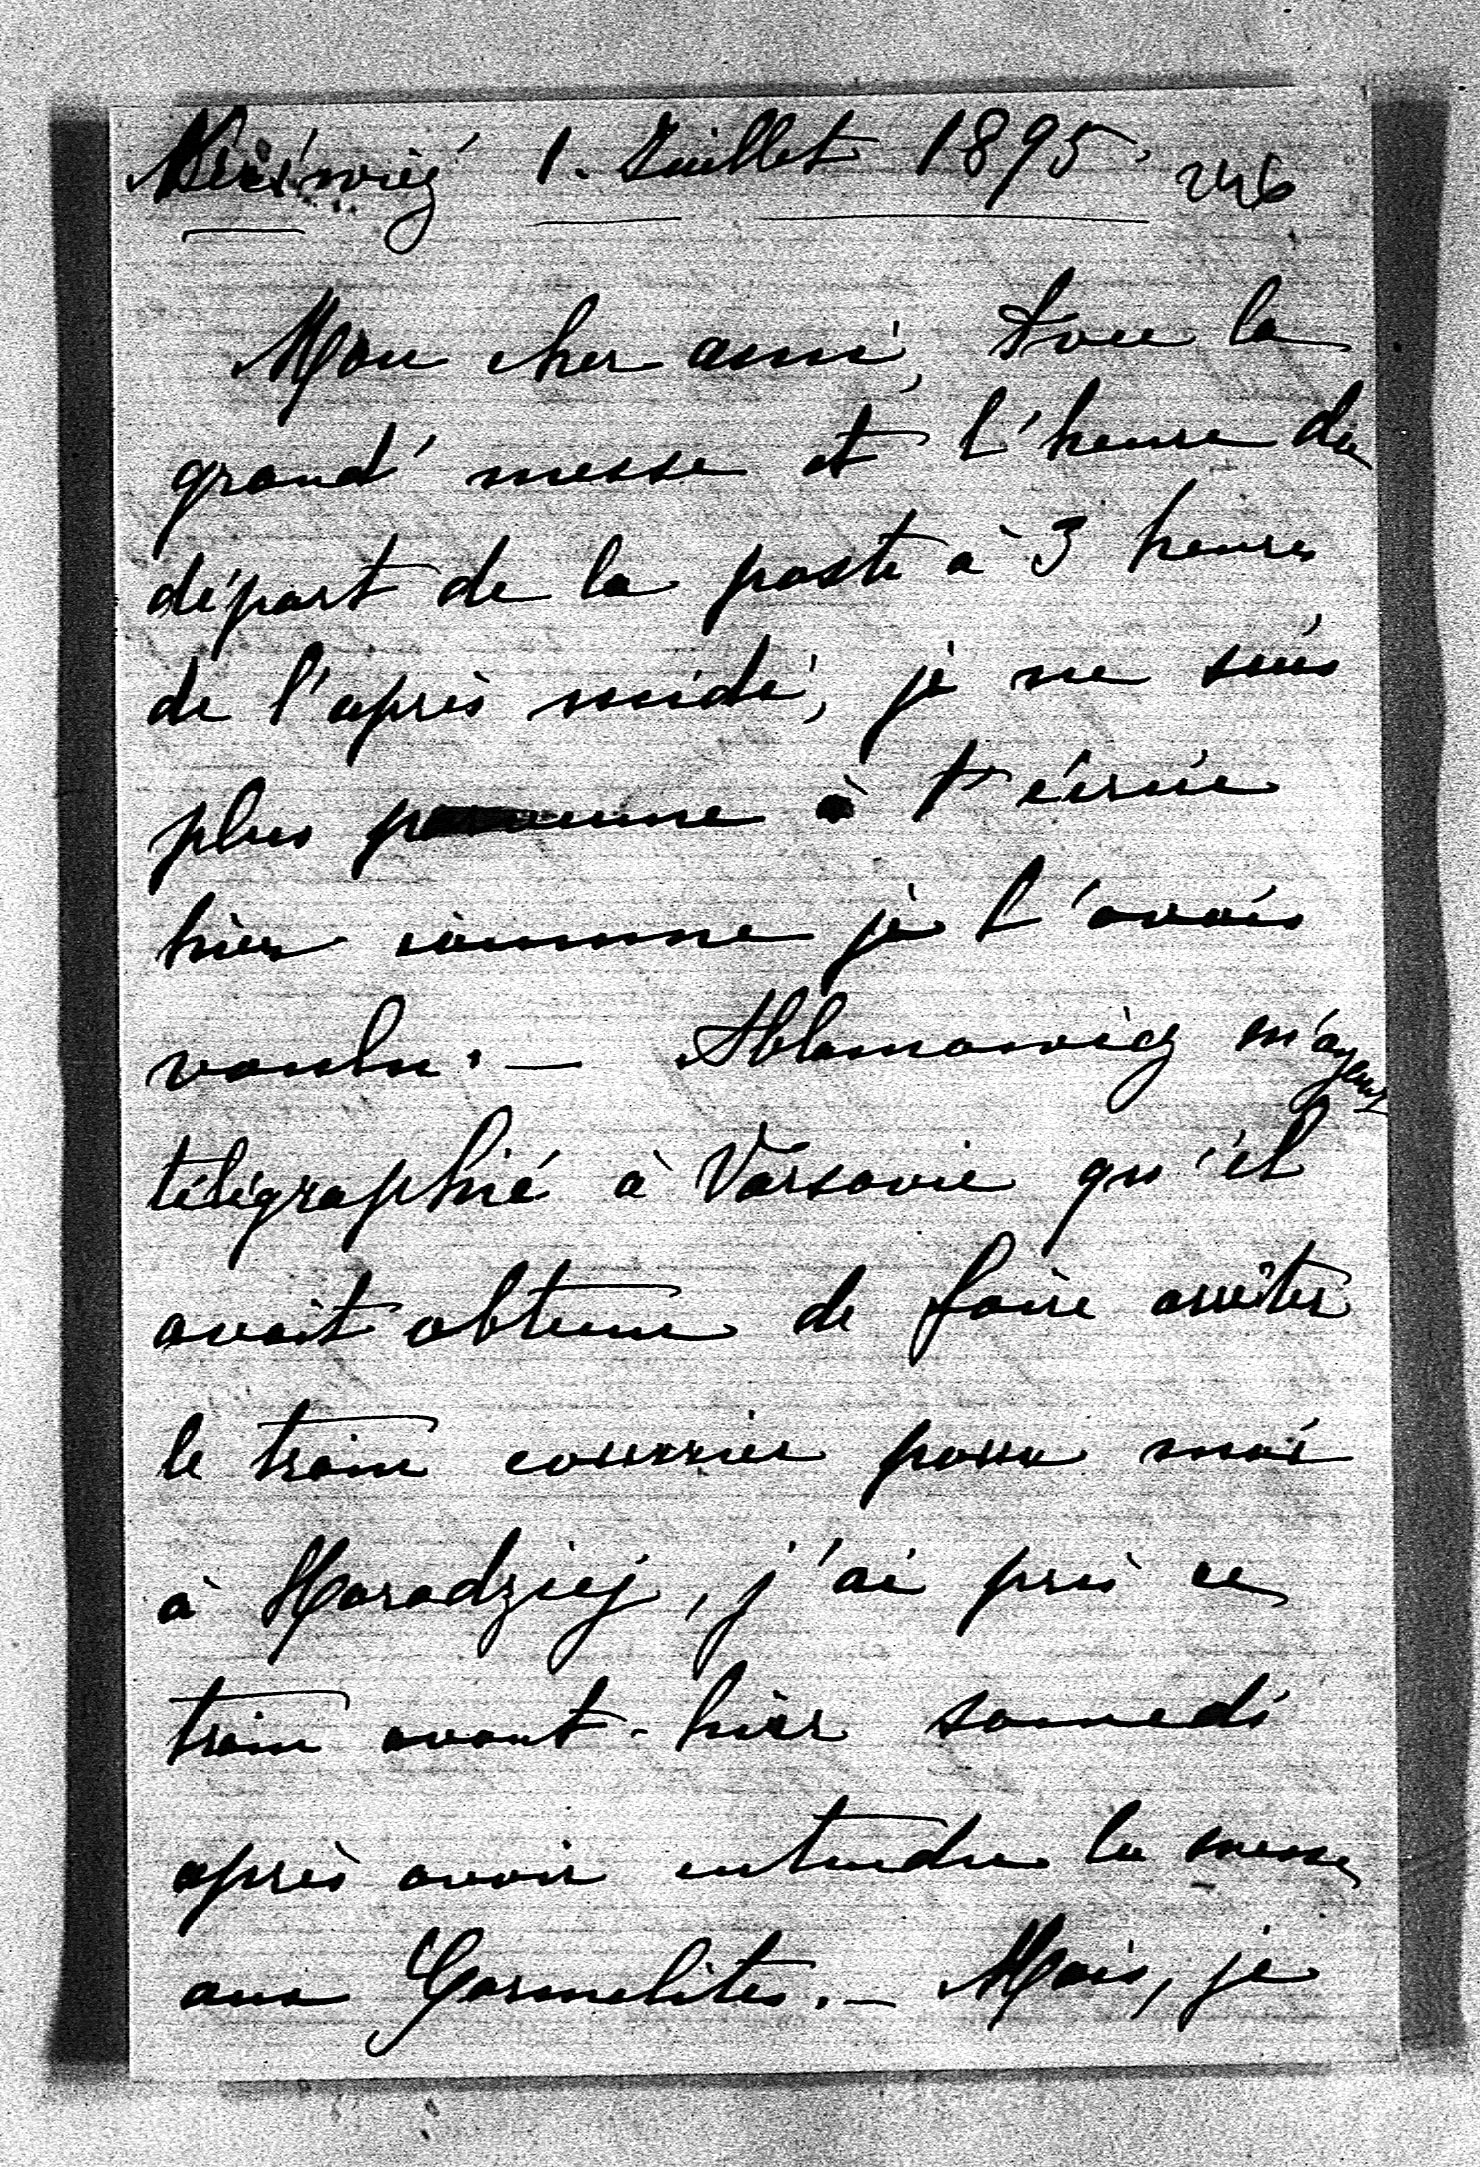 Nieśwież 1. Juillet 1895. 246
Mon cher ami, Avec la
grand' messe et l'heure du
départ de la poste à 3 heures
de l'après midi, je ne suis
plus à t'écrire
hier comme je l'avais
voulu. — Ablamowicz m'ayant
télégraphié à Varsovie qu'il
avait obtenu de faire arrêter
le train courrier pour moi
à Horodziej, j'ai pris ce
train avant-hier samedi
après avoir entendu la messe
aux Carmélites. — Mais, je